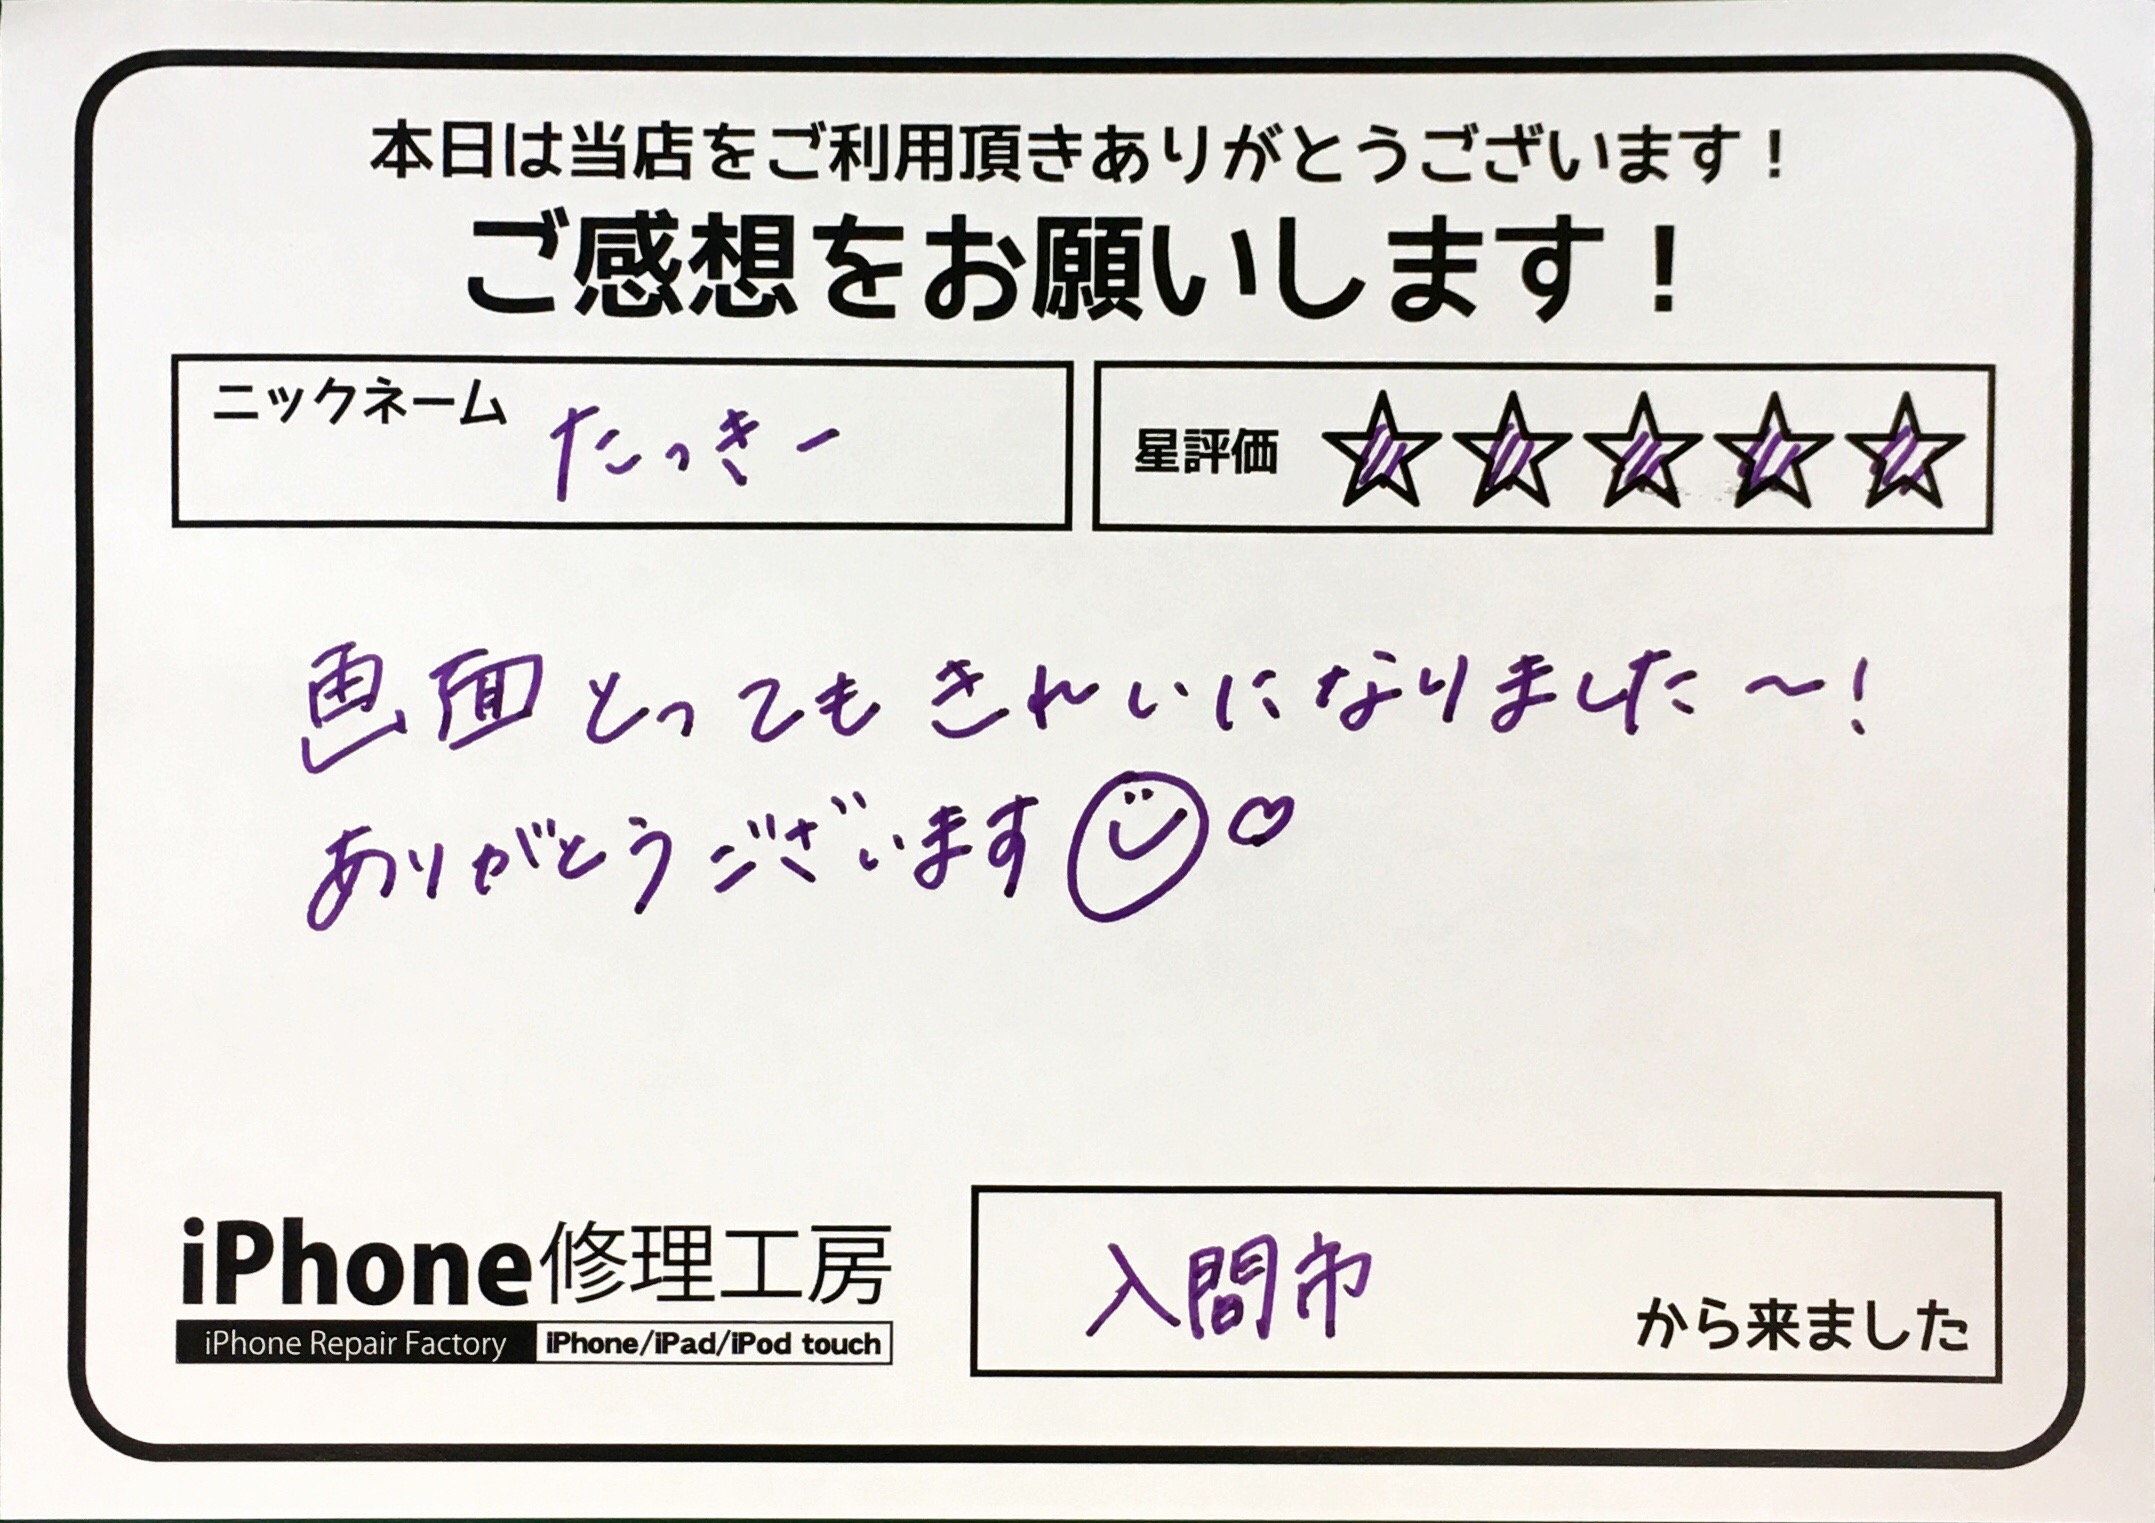 本日は当店をご利用頂きありがとうございます!
ご感想をお願いします!
ニックネーム たっきー
星評価 ★★★★★
画面とってもきれいになりました〜!
ありがとうございます☺♡
iPhone修理工房
iPhone Repair Factory iPhone/iPad/iPod touch
入間市 から来ました